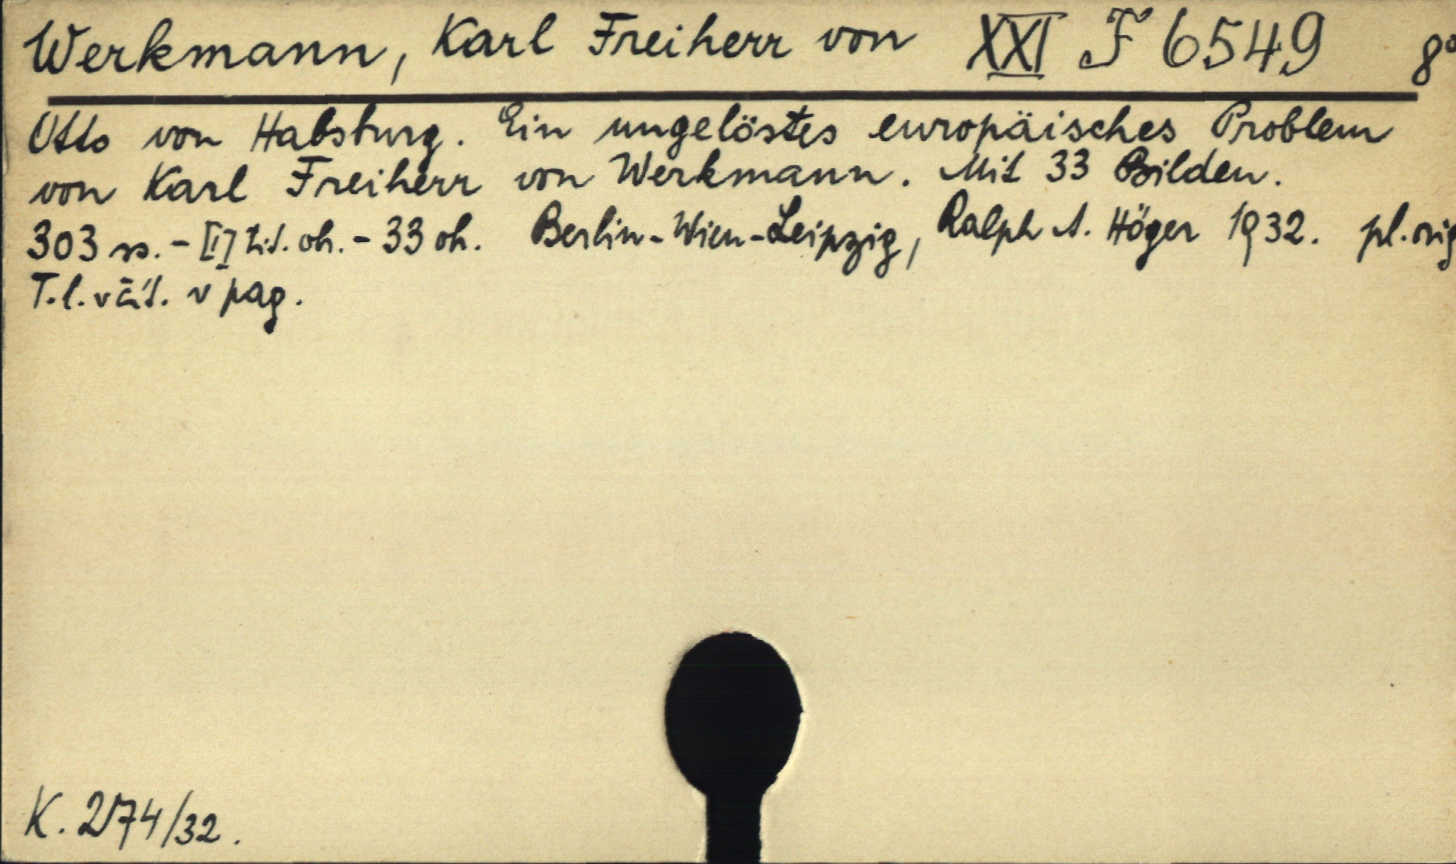 Werkmann, Karl Freiherr von XXI F 6549 8°
Otto von Habsburg. Ein ungelöstes europäisches Problem
von Karl Freiherr von Werkmann. Mit 33 Bilden.
303 ss. - [I] t.s. ob. - 33 ob. Berlin-Wien-Leipzig, Ralph A. Höger 1932. pl. orig
T.l. v čís. v pag.
K. 2174/32.